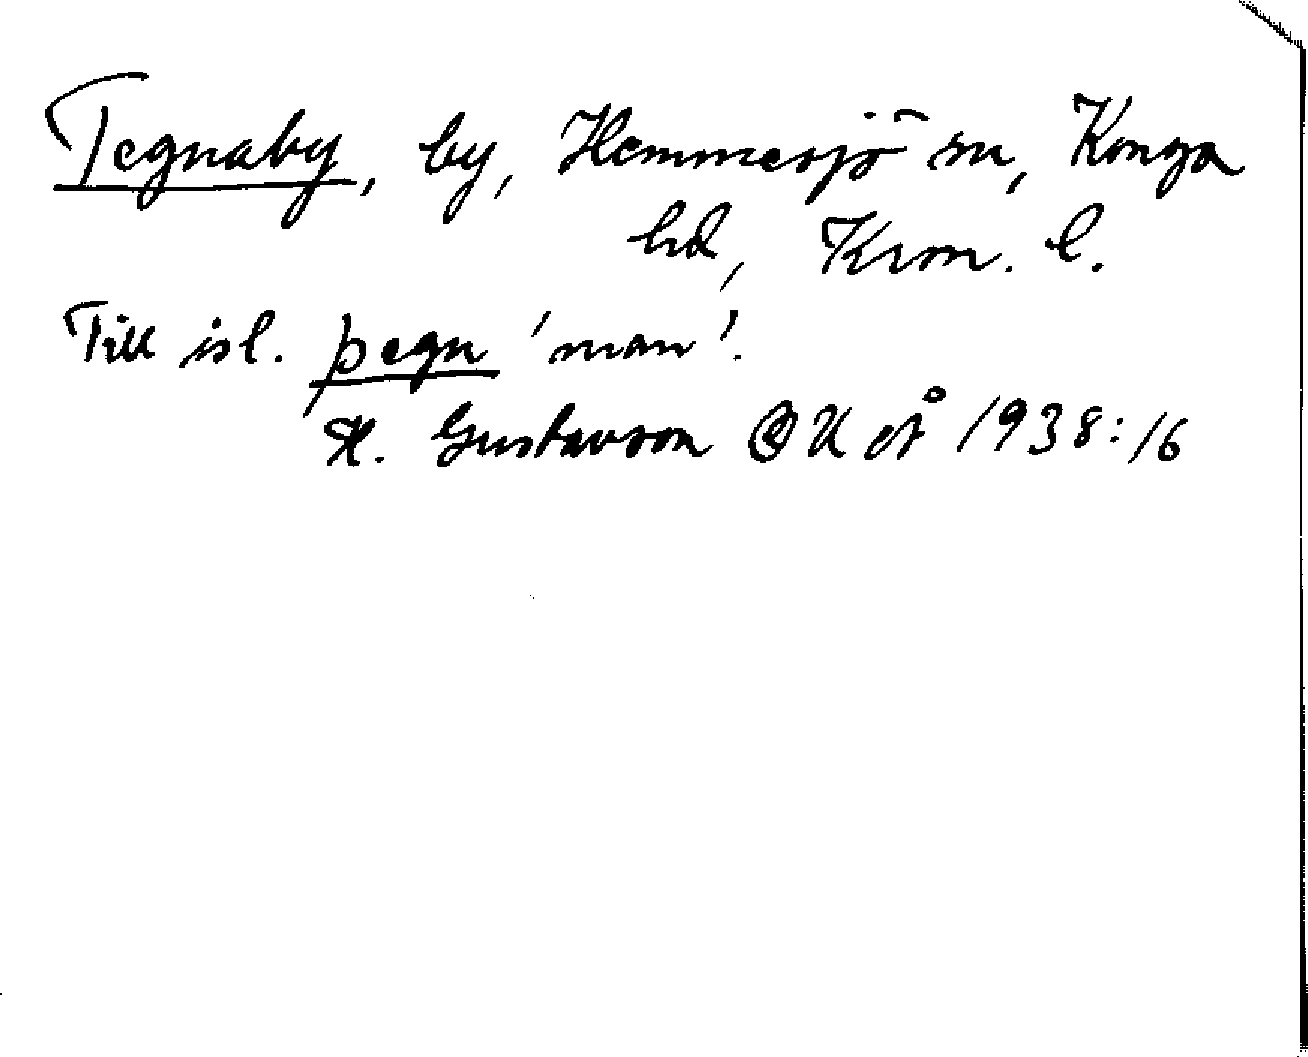 Tegnaby, by, Hemmesjö sn, Konga
hd, Kron. l.
Till isl. þegn 'man'.
H. Gustavson OUÅ 1938:16